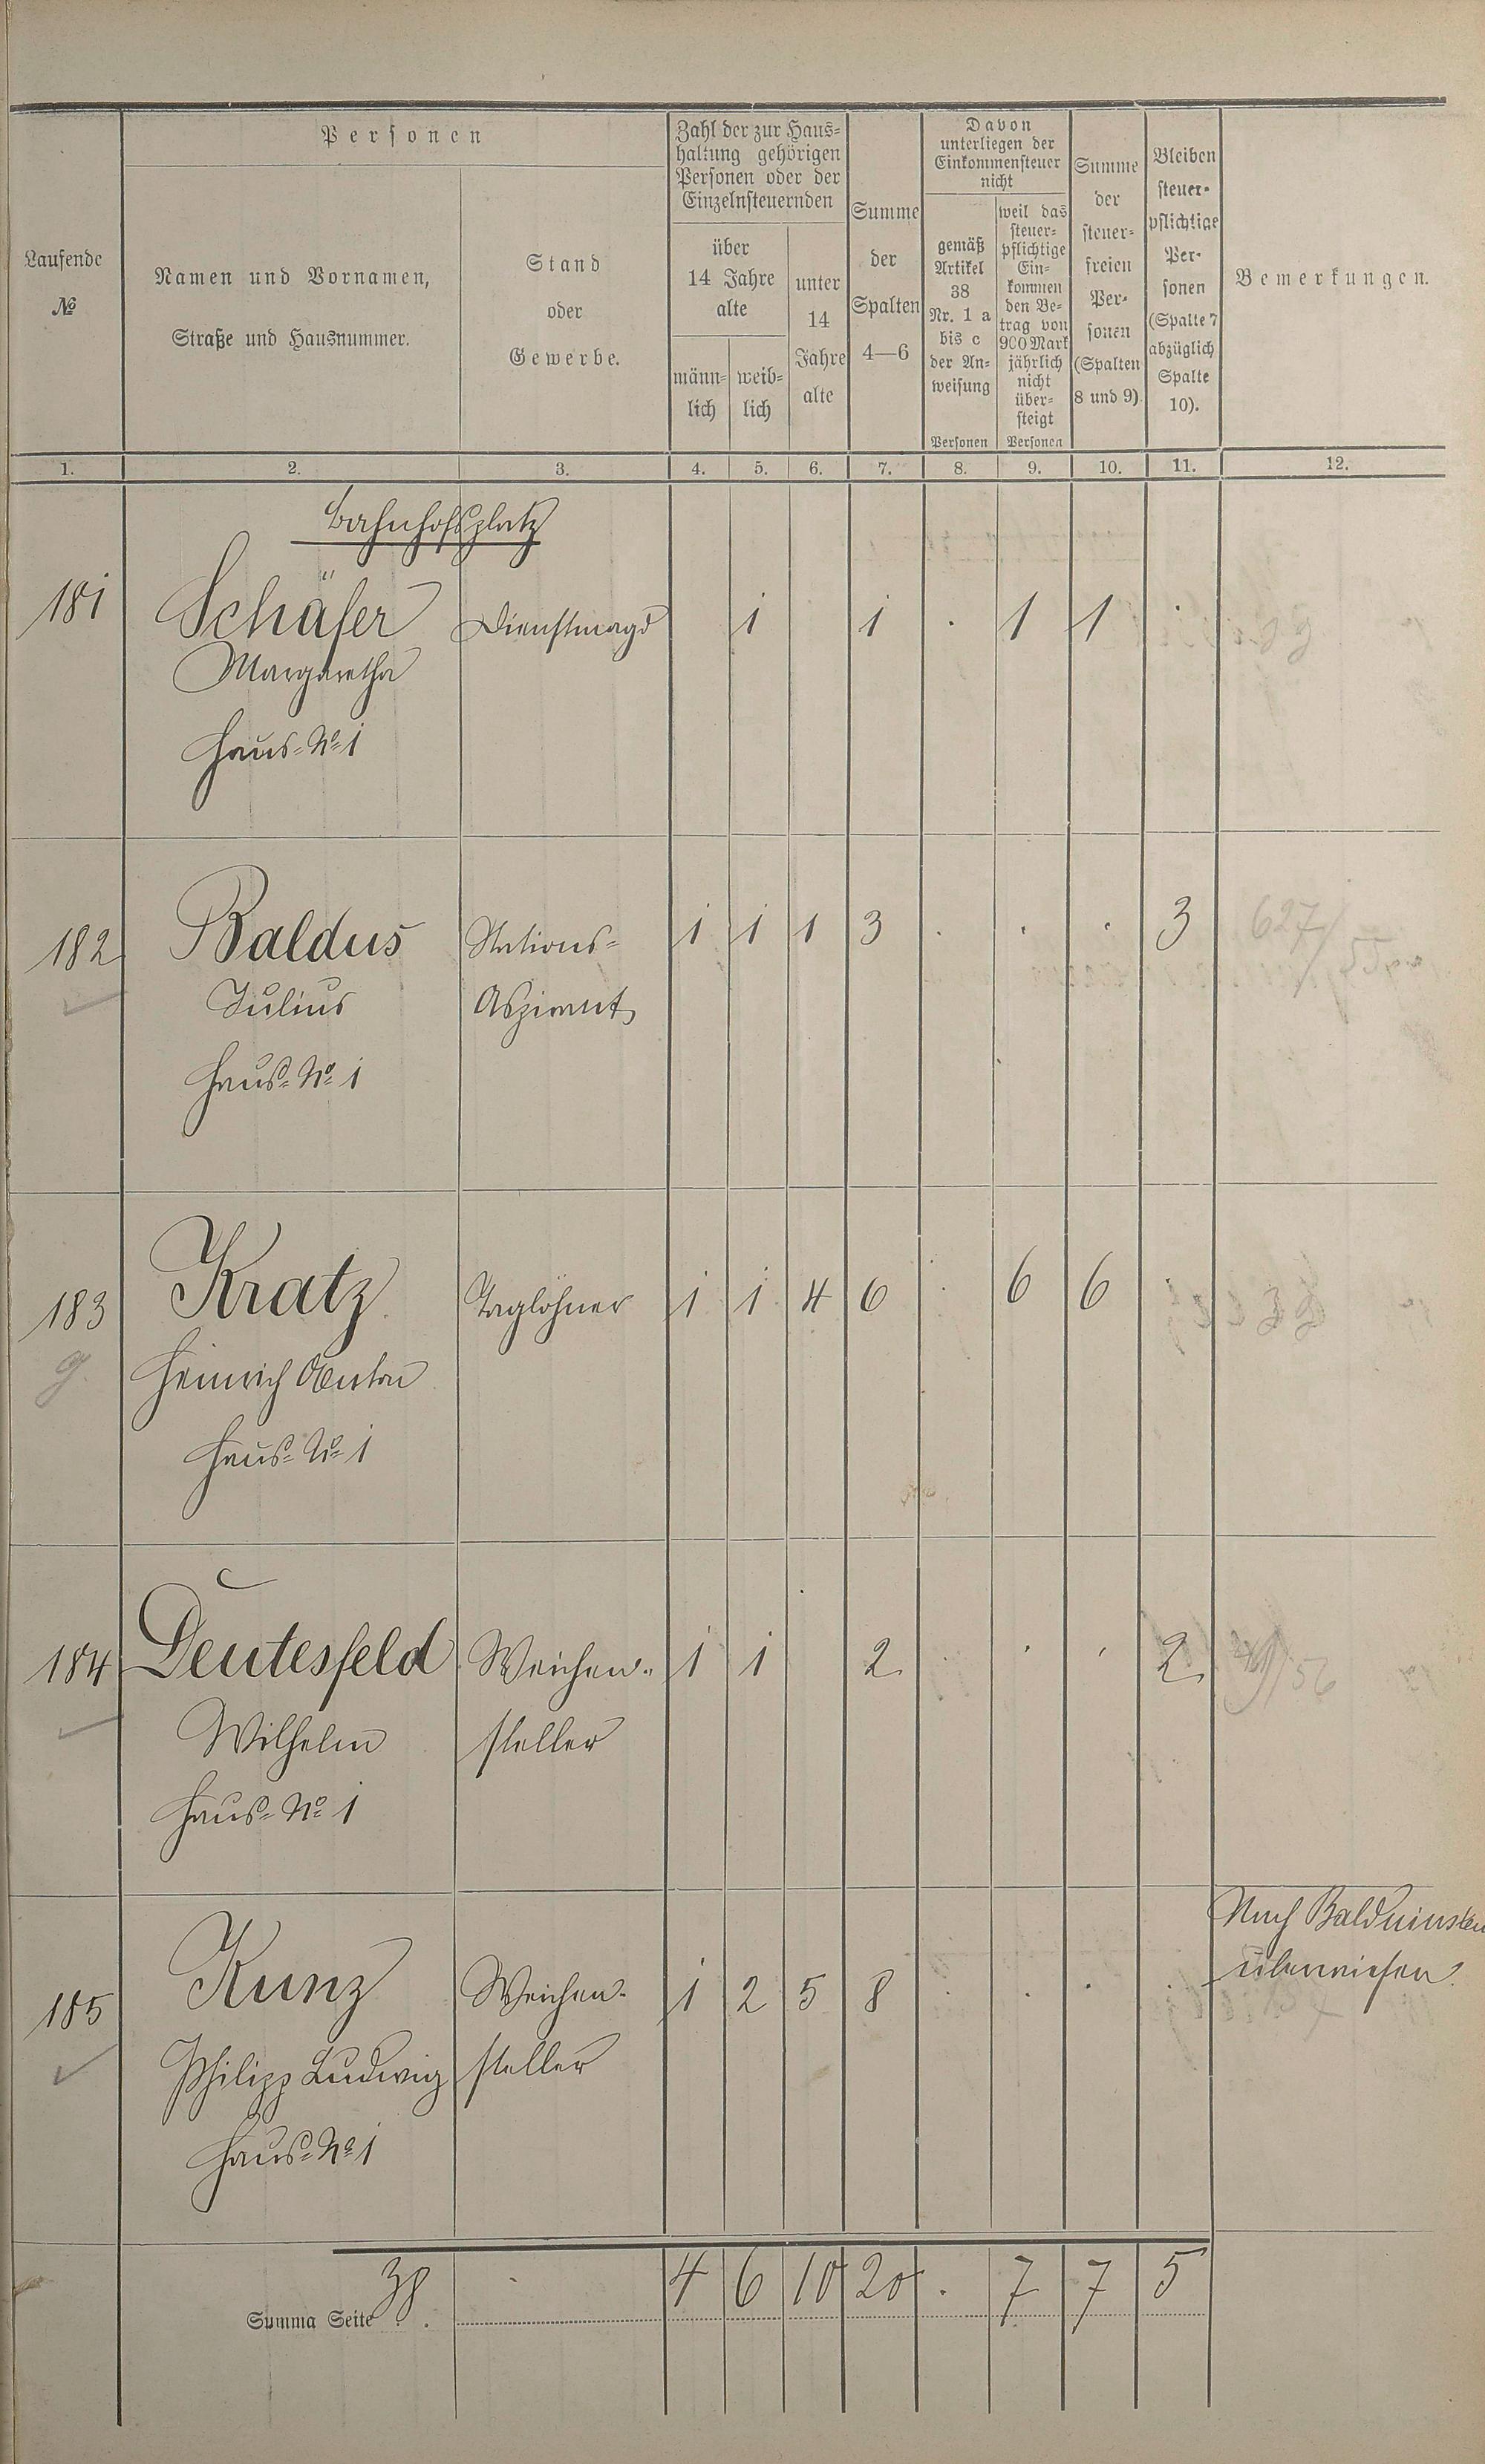 Laufende
№
Personen
Namen und Vornamen,
Straße und Hausnummer.
Stand
oder
Gewerbe.
Zahl der zur Haus=
haltung gehörigen
Personen oder der
Einzelnsteuernden
über
14 Jahre
alte
männ=
lich
weib=
lich
unter
14
Jahre
alte
Summe
der
Spalten
4—6
Davon
unterliegen der
Einkommensteuer
nicht
gemäß
Artikel
38
Nr. 1 a
bis c
der An=
weisung
Personen
weil das
steuer=
pflichtige
Ein=
kommen
den Be=
trag von
900 Mark
jährlich
nicht
über=
steigt
Personen
Summe
der
steuer=
freien
Per=
sonen
(Spalten
8 und 9).
Bleiben
steuer=
pflichtige
Per=
sonen
(Spalte 7
abzüglich
Spalte
10).
Bemerkungen.
1. 2. 3. 4. 5. 6. 7. 8. 9. 10. 11. 12.
Bahnhofsplatz
181 Schäfer Dienstmagd 1 1 . 1 1 .
Margaretha
Haus=№ 1
182 Baldus Stations= 1 1 1 3 . . . 3 627/
Julius Aspirant
Haus=№ 1
183 Kratz Taglöhner 1 1 4 6 . 6 6 .
Heinrich Anton
Haus=№ 1
184 Deutesfeld Weichen= 1 1 2 . . . 2
Wilhelm steller
Haus=№ 1
Nach Balduinstein
überwiesen.
185 Kunz Weichen= 1 2 5 8 . . . .
Philipp Ludwig steller
Haus=№ 1
Summa Seite 38. 4 6 10 20 . 7 7 5